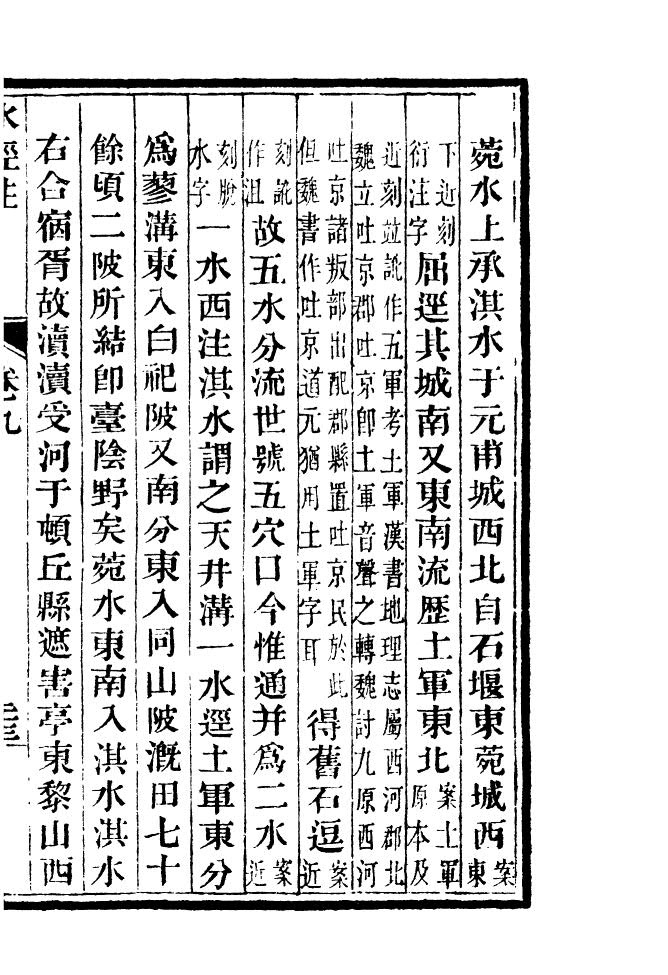 菀水上承淇水于元甫城西北自石堰東菀城西案東
下近刻衍注字屈逕其城南又東南流歷土軍東北案土軍原本及
近刻竝訛作五軍考土軍漢書地理志屬西河郡北
魏立吐京郡吐京卽土軍音聲之轉魏討九原西河
吐京諸叛部出配郡縣置吐京民於此
但魏書作吐京道元猶用土軍字耳得舊石逗案近
刻訛作沮故五水分流世號五穴口今惟通并爲二水案近
刻脫水字一水西注淇水謂之天井溝一水逕土軍東分
爲蓼溝東入白祀陂又南分東入同山陂漑田七十
餘頃二陂所結卽臺陰野矣菀水東南入淇水淇水
右合宿胥故瀆瀆受河于頓丘縣遮害亭東黎山西
水經注 卷九